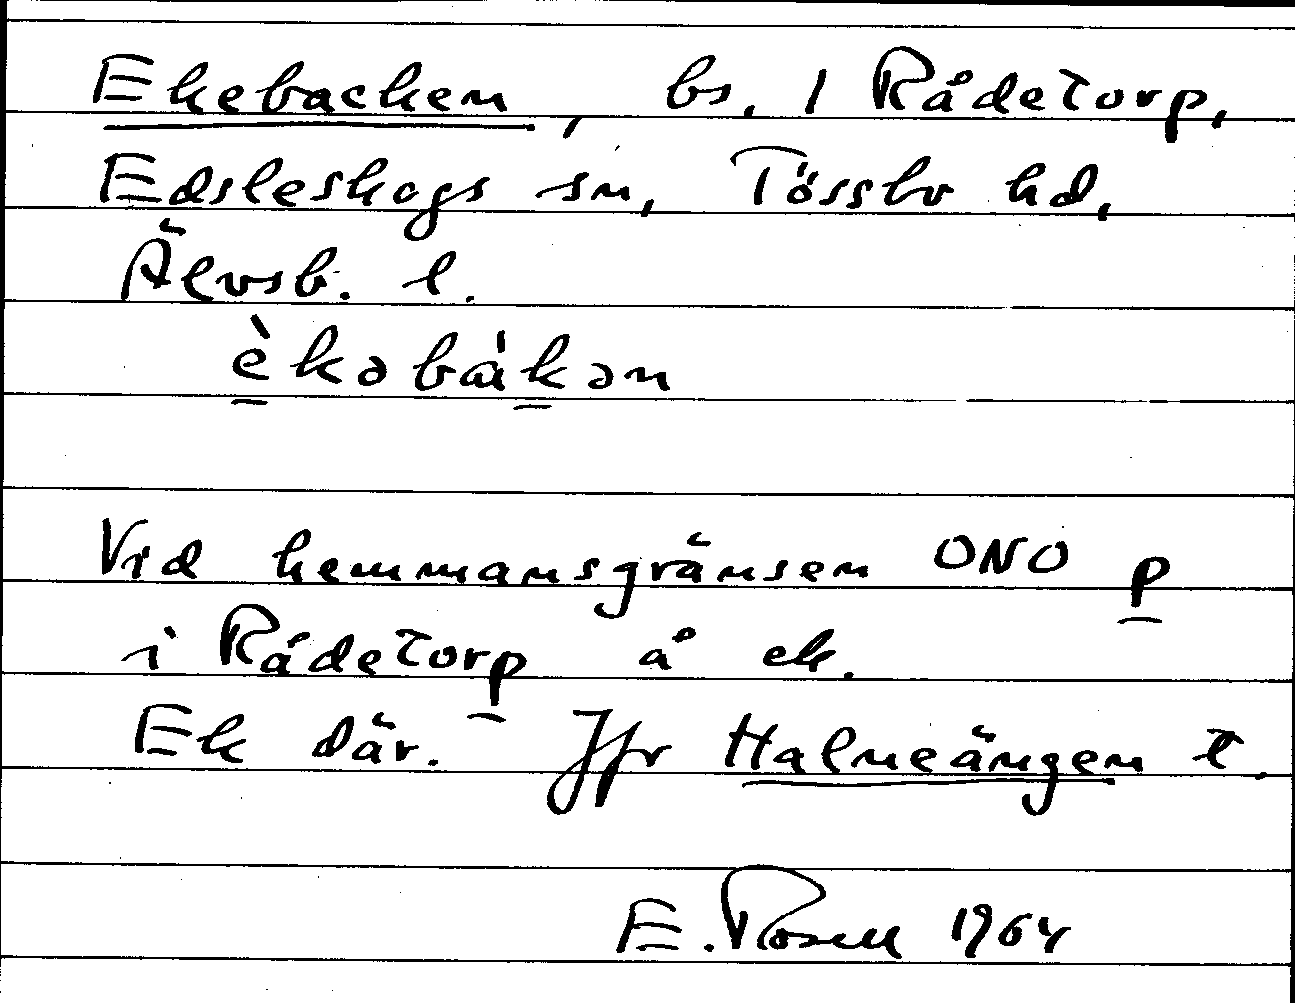 Ekebacken, bs. 1 Rådetorp,
Edsleskogs sn, Tössbo hd,
Älvsb. l.
èkəbàkən
Vid hemmansgränsen ONO p
i Rådetorp å ek.
Ek där. Jfr Halneängen t.
E. Rosell 1964